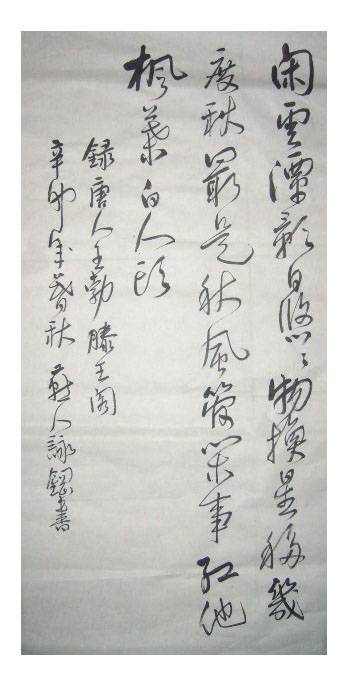 闲云潭影日悠々物换星移几
度秋最是秋风管闲事红他
枫叶白人头
録唐人王勃滕王阁
辛卯年暮秋燕人詠鋼書